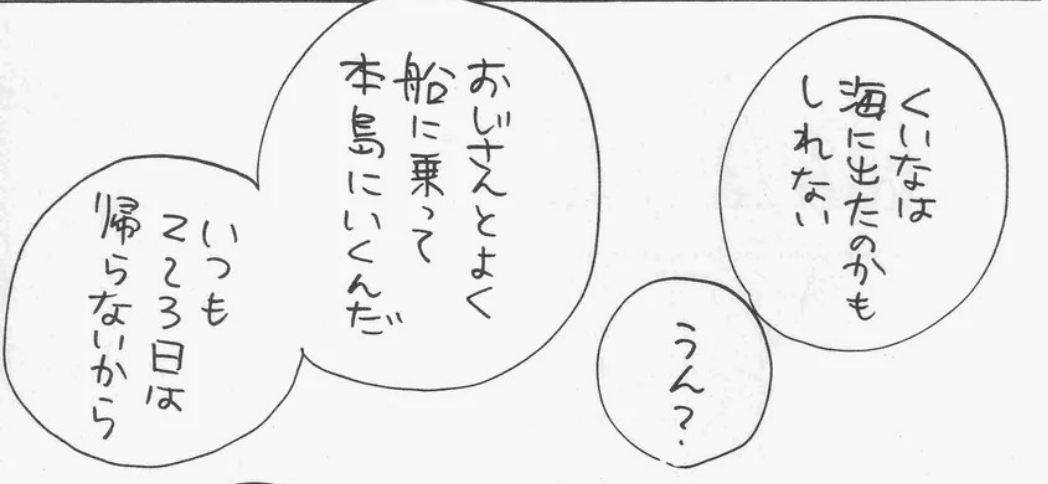 くいなは
海に出たのかも
しれない
うん？
おじさんとよく
船に乗って
本島にいくんだ
いつも
2〜3日は
帰らないから